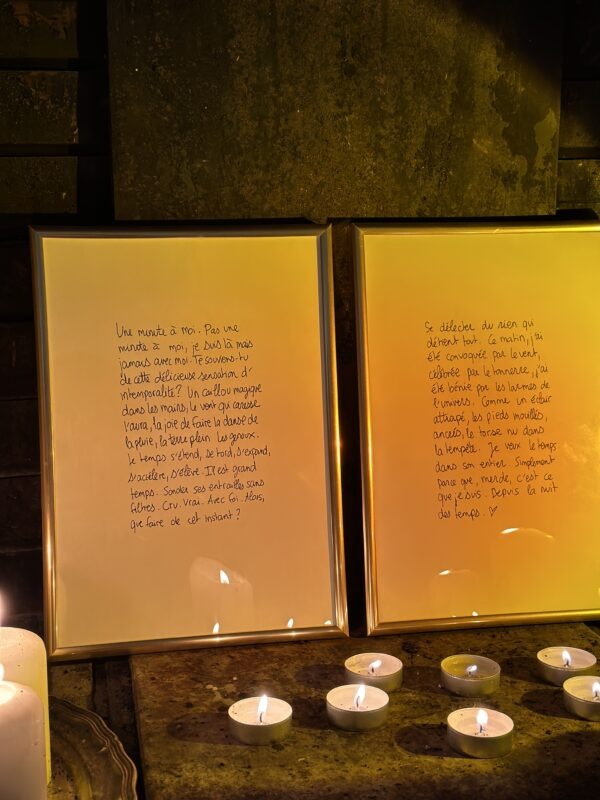 Une minute à moi. Pas une
minute à moi, je suis là mais
jamais avec moi. Te souviens-tu
de cette délicieuse sensation d'
intemporalité? Un caillou magique
dans les mains, le vent qui caresse
l'aura, la joie de faire la danse de
la pluie, la terre plein les genoux.
le temps s'étend, se tord, s'expand,
s'accélère, s'élève. Il est grand
temps. Sonder ses entrailles sans
filtres. Cru. Vrai. Avec foi. Alors,
que faire de cet instant?
Se délecter du rien qui
détient tout. Ce matin, j'ai
été convoquée par le vent,
célébrée par le tonnerre, j'ai
été bénie par les larmes de
l'univers. Comme un éclair
attrapé, les pieds mouillés,
ancrés, le torse nu dans
la tempête. Je veux le temps
dans son entier. Simplement
parce que, merde, c'est ce
que je suis. Depuis la nuit
des temps. ♡